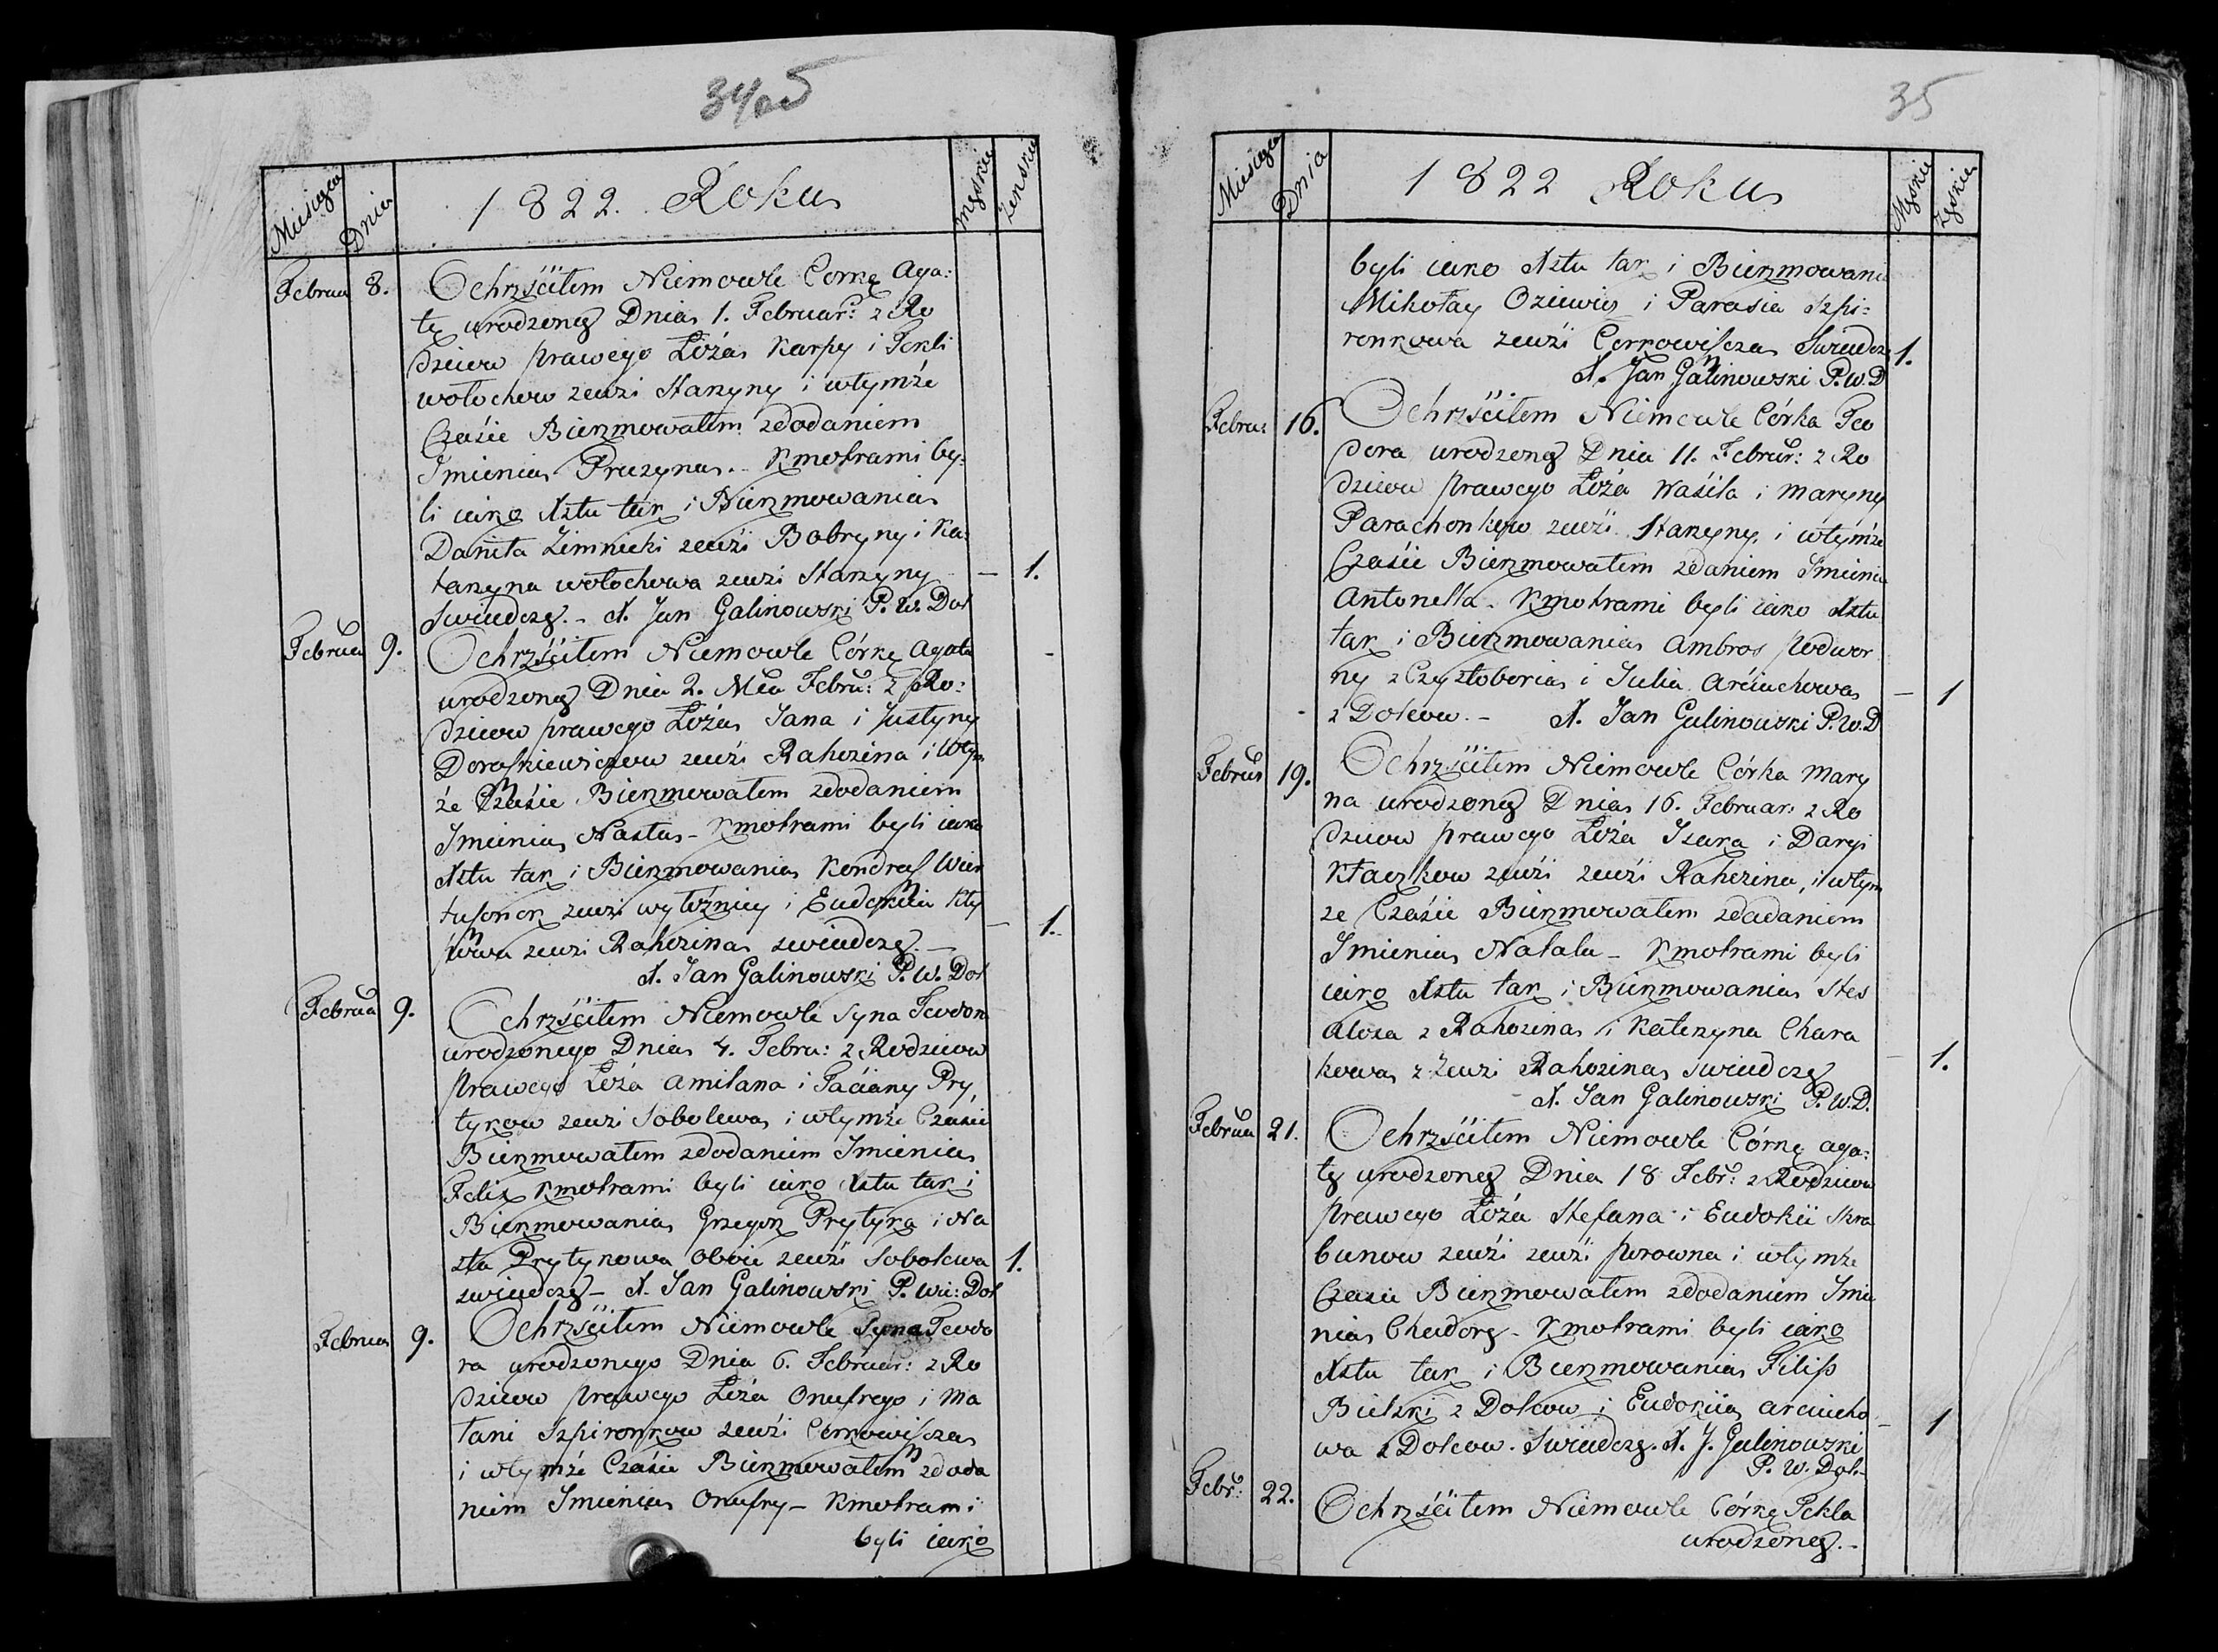 34 об
Miesiąca Dnia 1822. Roku męskie żenskie
Februa 8. Ochrzściłem Niemowle Corkę Aga:
tę urodzoną Dnia 1. Februar: z Ro
dziców prawego Łóża Karpy i Tekli
wołochow zewsi Starzyny i wtymże
Czasie Bierzmowałem zdodaniem
Imienia Pruzyna. Kmotrami by:
li iako Xztu tak i Bierzmowania
Daniła Zimnicki zewsi Bobryny i Ka:
tarzyna wołochowa zewsi Starzyny — 1.
Swiadczę. – X. Jan Galinowski P. W. Doł
Februa 9. Ochrzściłem Niemowle Córkę Agata
urodzoną Dnia 2. Mca Febru: z Ro:
dziców prawego Łóża Jana i Justyny
Doroszkiewiczow zewsi Rahozina i wtym
że Czasie Bierzmowałem zdodaniem
Imienia Nasta – Kmotrami byli iako
Xztu tak i Bierzmowania Kondrat Wier
zewsi i Eudokiia
zewsi Rahozina swiadczę. – — 1.
X. Jan Galinowski P. W. Doł
Februa 9. Ochrzściłem Niemowle Syna Teodora
urodzonego Dnia 4. Febru: z Rodziców
prawego Łóża Amilana i Taciany Pry
tykow zewsi Sobolewa i wtymże Czasie
Bierzmowałem zdodaniem Imienia
Felix Kmotrami byli iako Xztu tak i
Bierzmowania Grzegorz Prytyka i Na
sta Prytykowa oboie zewsi Sobolewa 1.
swiadczę – X. Jan Galinowski P. Wi: Doł
Februa 9. Ochrzściłem Niemowle Syna Teodo
ra urodzonego Dnia 6. Februar: z Ro
dziców prawego Łóża Onufrego i Ma
łani Szpironkow zewsi Cerkowiszcza
i wtymże Czasie Bierzmowałem zdoda
niem Imienia Onufry – Kmotrami
byli iako
35
Miesiąca Dnia 1822 Roku Męskie Żęskie
byli iako Xztu tak i Bierzmowania
Mikołay Oziewicz i Parasia Szpi:
ronkowa zewsi Cerkowiszcza Swiadczę 1.
X. Jan Galinowski P. W. D
Febru: 16. Ochrzściłem Niemowle Córka Teo
dora urodzoną Dnia 11. Februr: z Ro
dziców prawego Łóża Wasila i Maryny
Parachonkow zewsi Starzyny, i wtymże
Czasie Bierzmowałem zdaniem Imienia
Antonella. Kmotrami byli iako Xztu
tak i Bierzmowania Ambros podwor
ny z Czysztoboria i Julia Arciuchowa — 1
z Dołcow. – X. Jan Galinowski P. W. D
Februr 19. Ochrzściłem Niemowle Córka Mary
na urodzoną Dnia 16. Februar: z Ro
dziców prawego Łóża Izaka i Daryi
Kłaczkow zewsi zewsi Rahozina, i wtym
ze Czasie Bierzmowałem zdadaniem
Imienia Natala – Kmotrami byli
iako Xztu tak i Bierzmowania Stes
Aloza z Rahozina i Katerzyna Chara
kowa z zewsi Rahozina swiadczę — 1.
X. Jan Galinowski P. W. D.
Februa 21. Ochrzściłem Niemowle Córkę Aga:
tę urodzoną Dnia 18 Febr: z Rodziców
prawego Łóża Stefana i Eudokii Skra
bunow zewsi zewsi porowna i wtymże
Czasie Bierzmowałem zdodaniem Imie
nia Chwdorę – Kmotrami byli iako
Xztu tak i Bierzmowania Filip
Bielski z Dołcow i Eudokiia Arciucho — 1
wa z Dołcow. Swiadczę. X. J. Galinowski
P. W. Doł.
Febr: 22. Ochrzściłem Niemowle Córkę Tekla
urodzoną. –